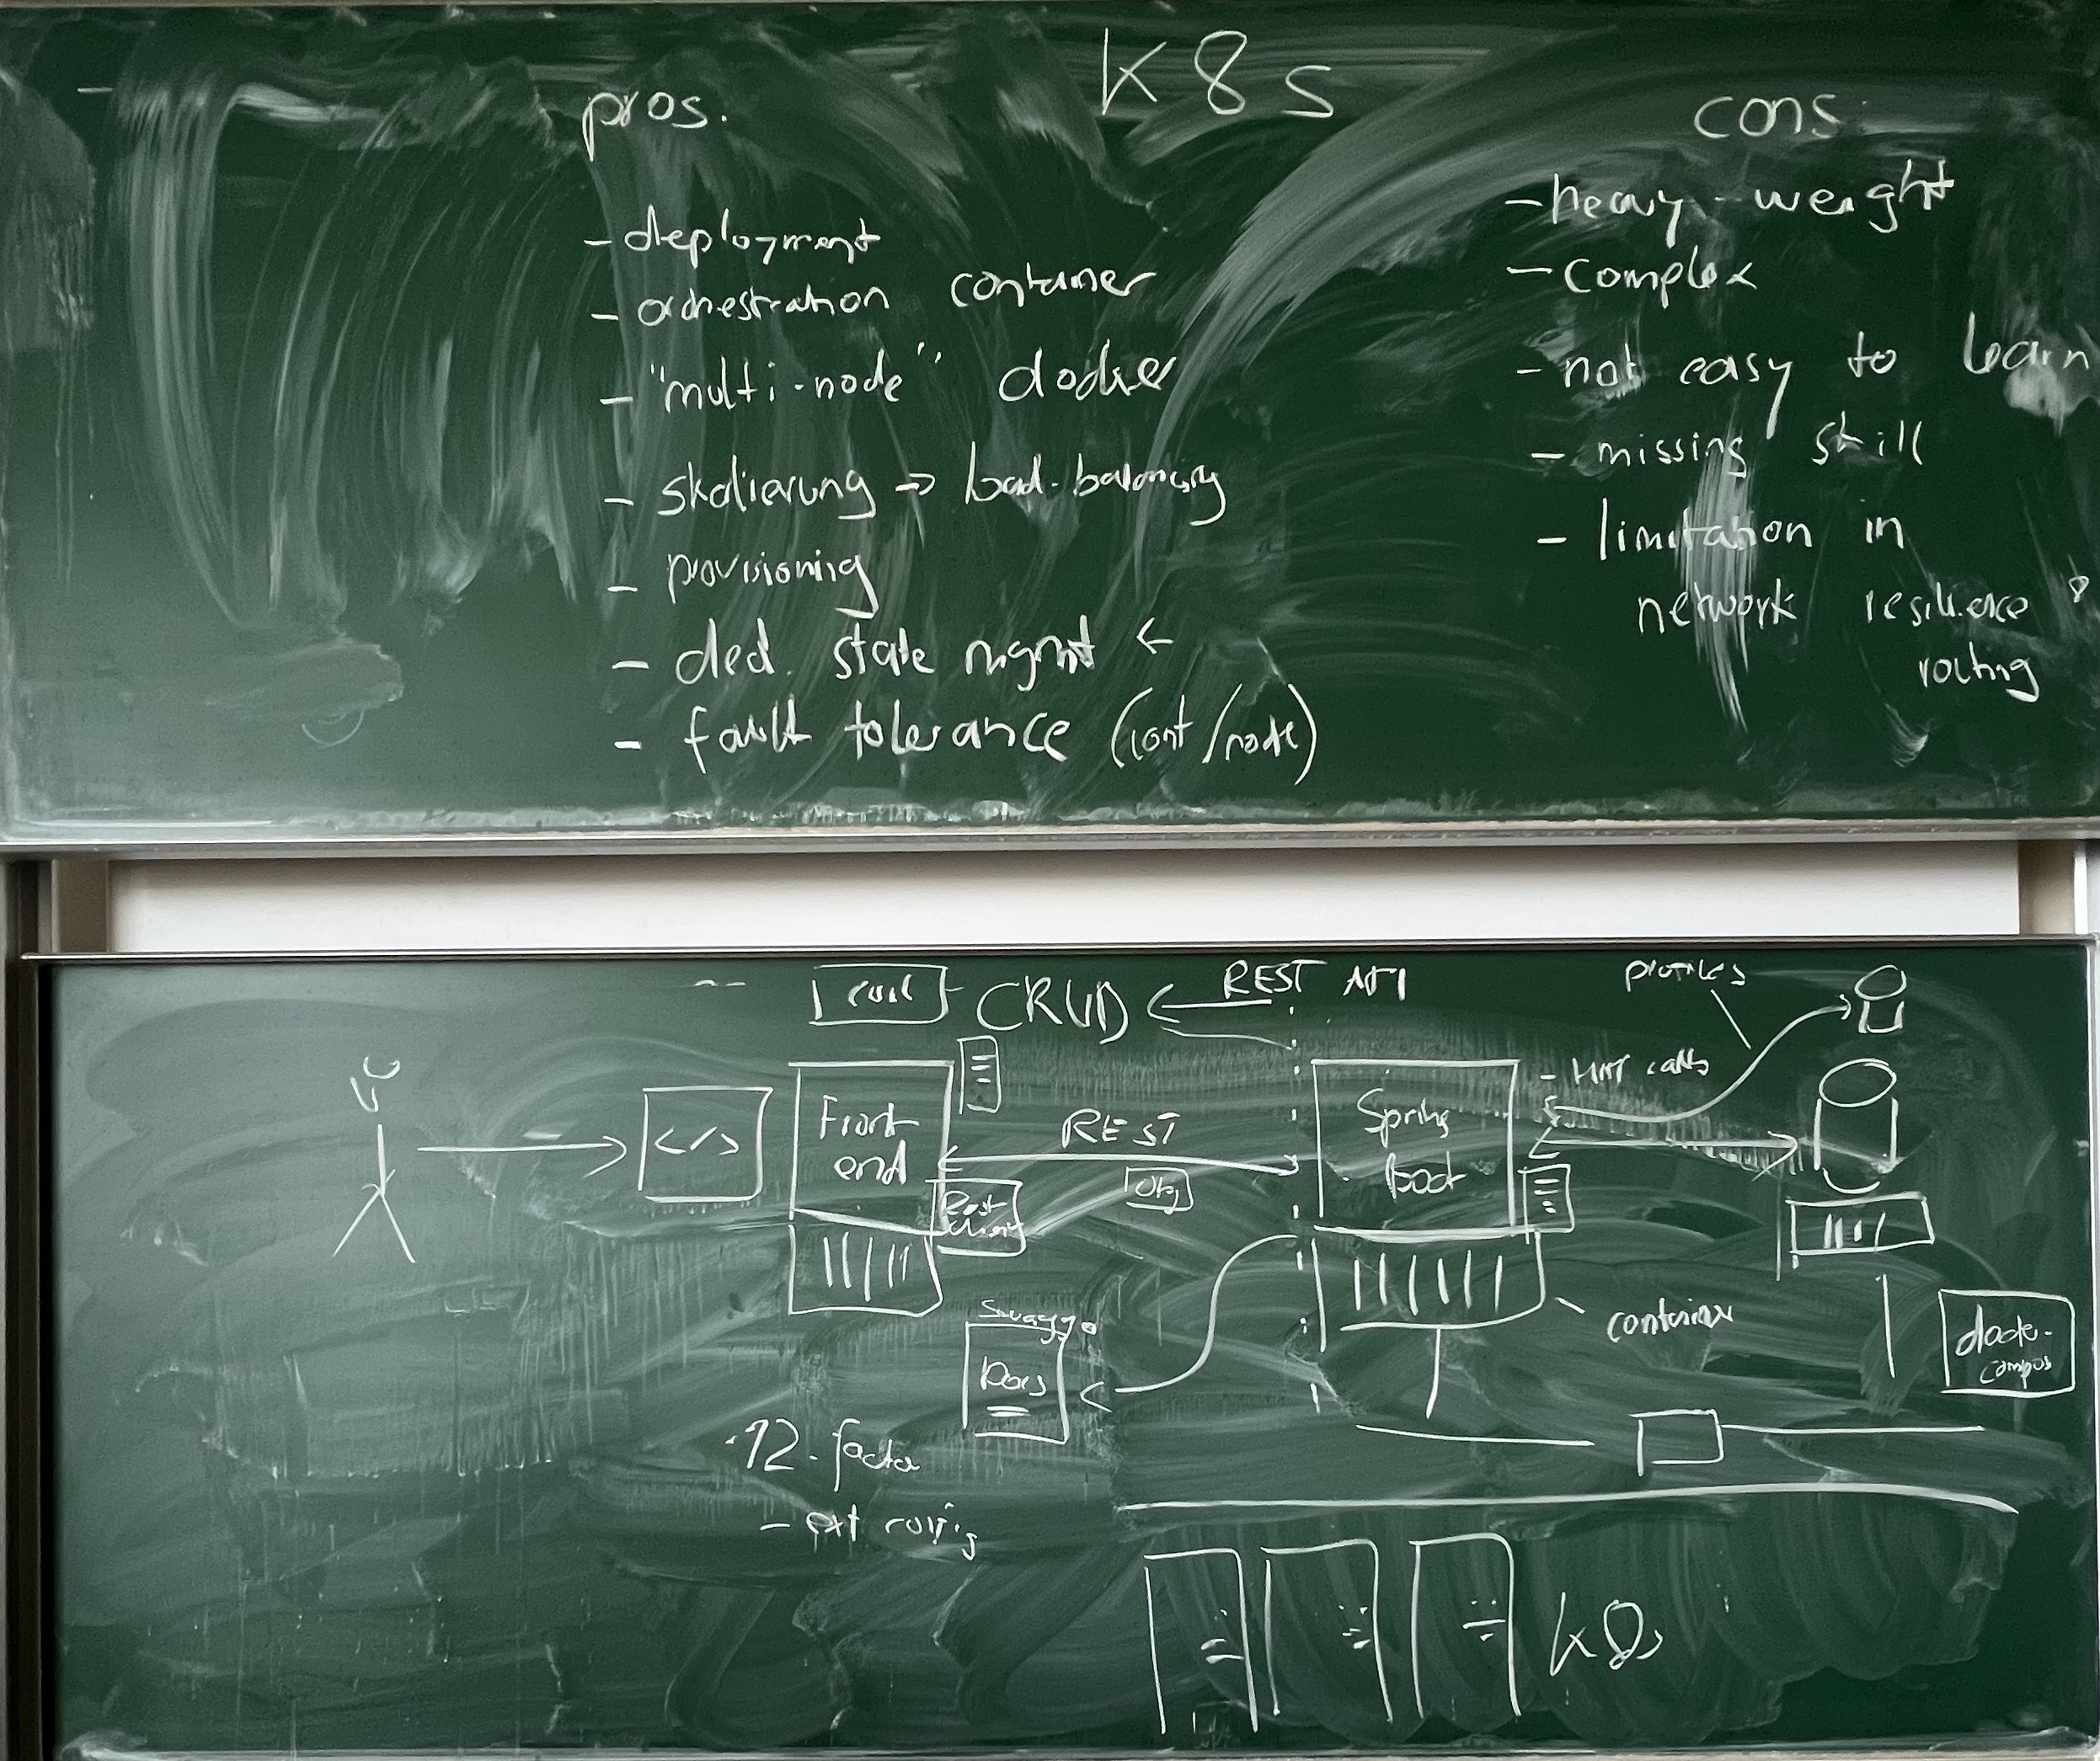 K8s
pros.
- deployment
- orchestration container
- "multi-node" docker
- skalierung → load-balancing
- provisioning
- decl. state mgmt ←
- fault tolerance (cont/node)
cons:
- heavy-weight
- complex
- not easy to learn
- missing skill
- limitation in
network resilience &
routing
curl CRUD ← REST API
profiles
</>
Front
end
REST
Obj
Rest
client
Spring
Boot
container
Swagger
Docs
docker-
compos
12-factor
- ext config
k8s